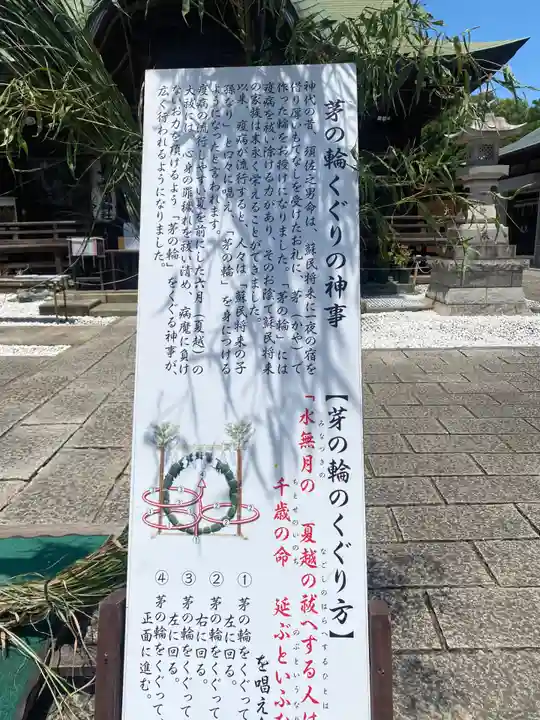 茅の輪くぐりの神事
神代の昔、須佐之男命は、蘇民将来に一夜の宿を
借り厚いもてなしを受けたお礼に、茅(かや)で
作った輪をお授けになりました。「茅の輪」には
疫病を祓い除ける力があり、そのお陰で蘇民将来
の家族は末永く栄えることができました。
以来、疫病が流行すると、人々は「蘇民将来の子
孫なり」と口々に唱え、「茅の輪」を身につける
ようになったと言われます。
疫病の流行しやすい夏を前にした六月(夏越)の
大祓には、心身の罪穢れを祓い清め、病魔に負け
ないお力を頂けるよう「茅の輪」をくぐる神事が、
広く行われるようになりました。
【茅の輪のくぐり方】
「水無月の 夏越の祓へする人は
みなつきの なごしのはらへするひとは
千歳の命 延ぶといふな
ちとせのいのち のぶというな
を唱え
① 茅の輪をくぐって
左に回る。
② 茅の輪をくぐって
右に回る。
③ 茅の輪をくぐって
左に回る。
④ 茅の輪をくぐって、
正面に進む。